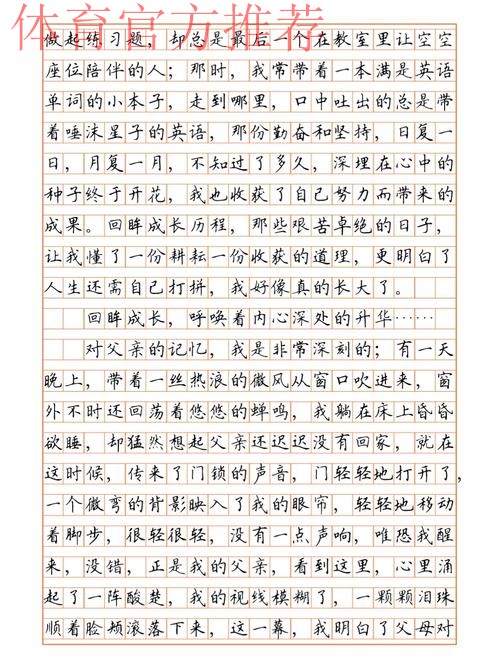 体育官方推荐
做起练习题，却总是最后一个在教室里让空空
座位陪伴的人；那时，我常带着一本满是英语
单词的小本子，走到哪里，口中吐出的总是带
着唾沫星子的英语，那份勤奋和坚持，日复一
日，月复一月，不知过了多久，深埋在心中的
种子终于开花，我也收获了自己努力而带来的
成果。回眸成长历程，那些艰苦卓绝的日子，
让我懂了一份耕耘一份收获的道理，更明白了
人生还需自己打拼，我好像真的长大了。
回眸成长，呼唤着内心深处的升华……
对父亲的记忆，我是非常深刻的；有一天
晚上，带着一丝热浪的微风从窗口吹进来，窗
外不时还回荡着悠悠的蝉鸣，我躺在床上昏昏
欲睡，却猛然想起父亲还迟迟没有回家，就在
这时候，传来了门锁的声音，门轻轻地打开了，
一个微弯的背影映入了我的眼帘，轻轻地移动
着脚步，很轻很轻，没有一点声响，唯恐我醒
来，没错，正是我的父亲，看到这里，心里涌
起了一阵酸楚，我的视线模糊了，一颗颗泪珠
顺着脸颊滚落下来，这一幕，我明白了父母对